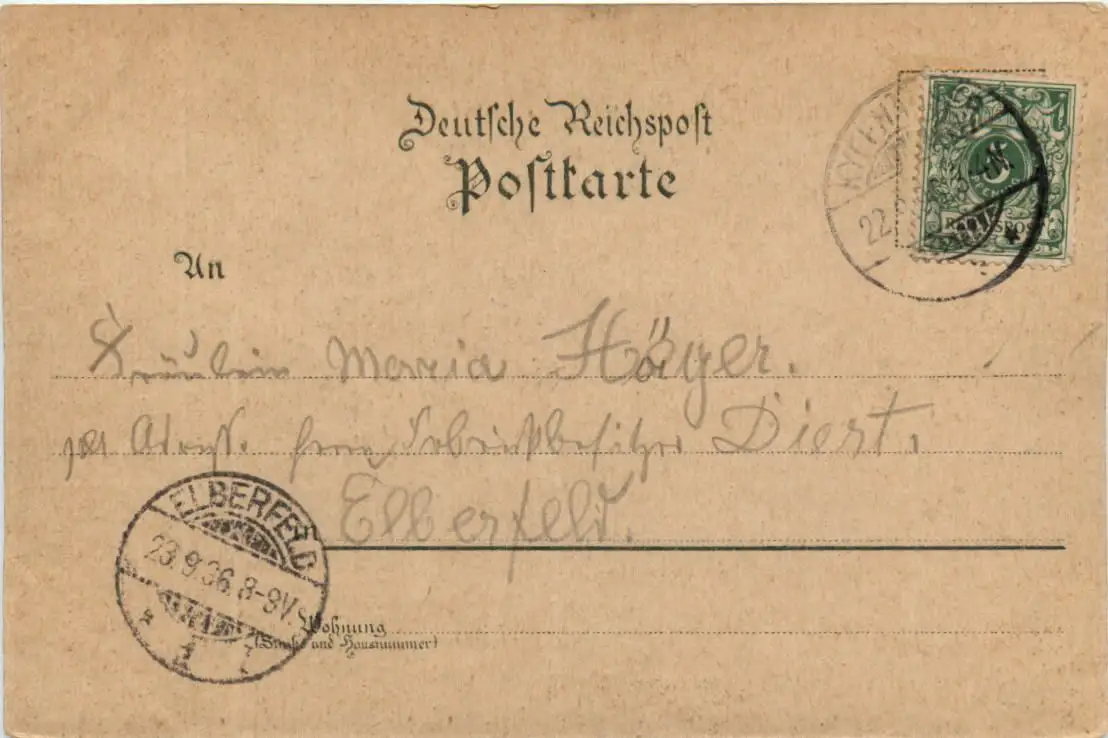 Deutsche Reichspost
Postkarte
An
Fräulein Maria Häger.
per Adress. Herrn Fabrikbesitzer Diert.
Elberfeld.
ELBERFELD
23.9.96.8-9V.
Wohnung
(Straße und Hausnummer)
22
REICHSPOST